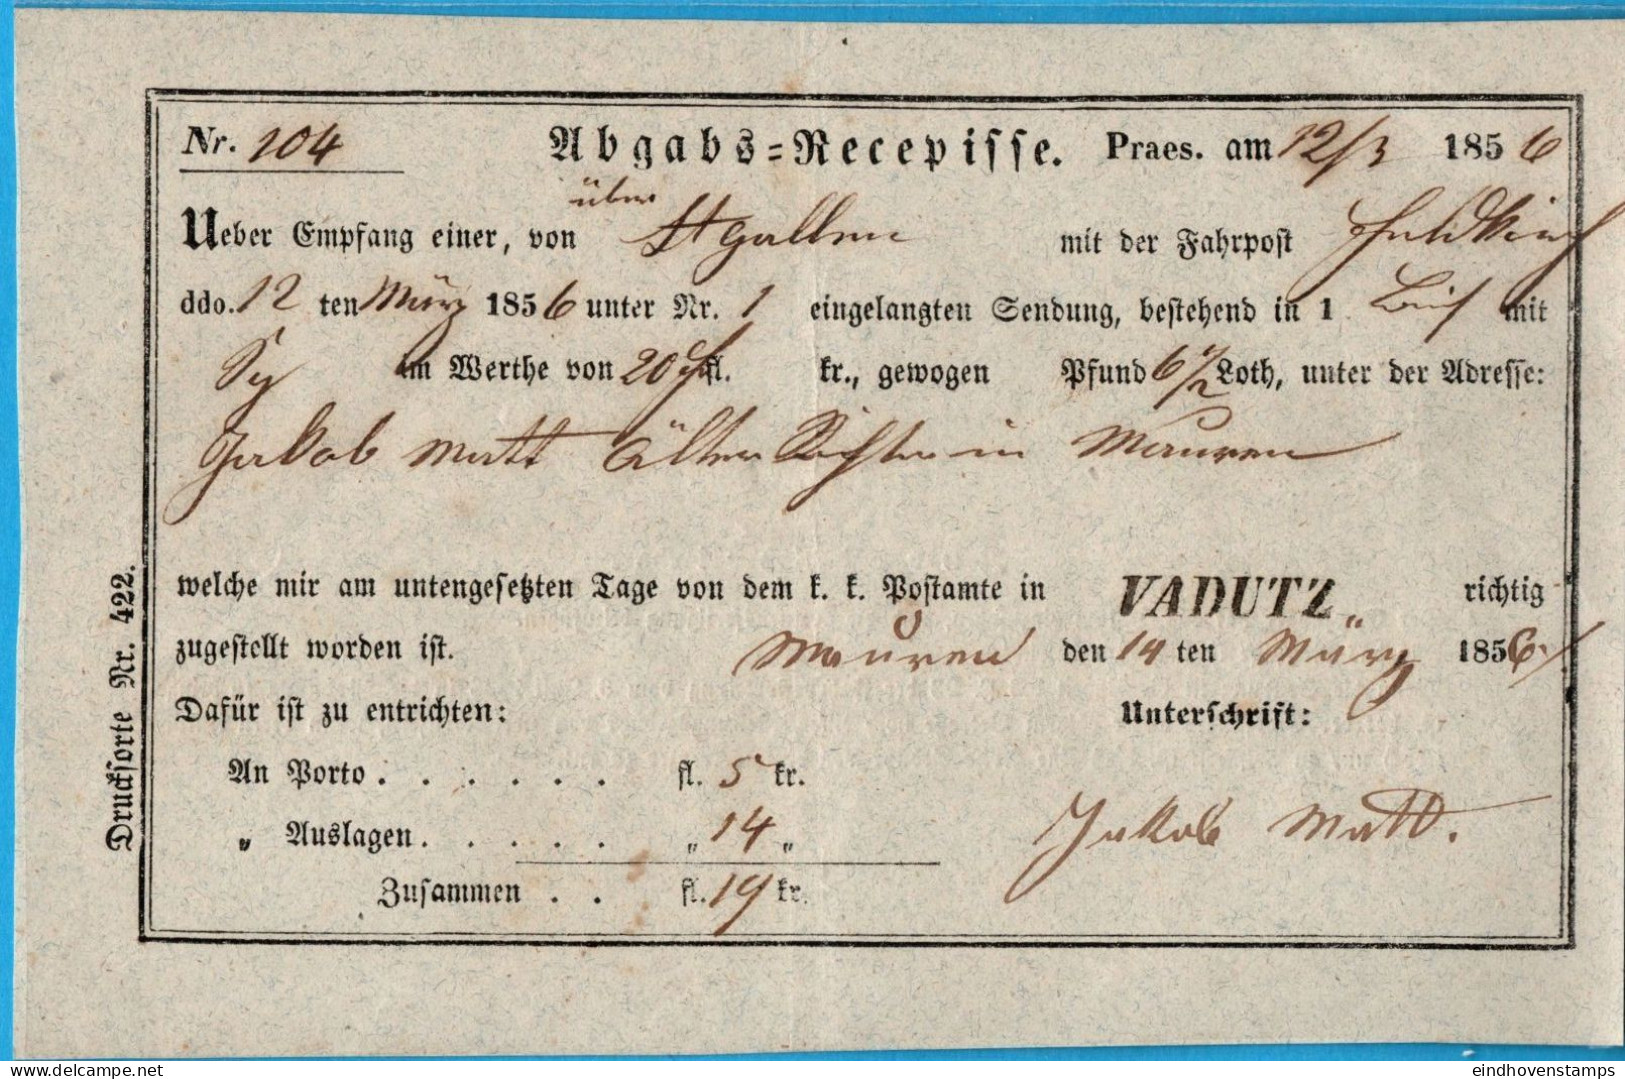 Nr. 104 Abgabs=Recepisse. Praes. am 12/3 1856
über
Ueber Empfang einer, von St Gallen mit der Fahrpost Feldkirch
ddo. 12 ten März 1856 unter Nr. 1 eingelangten Sendung, bestehend in 1 Brief mit
im Werthe von 20 fl. kr., gewogen Pfund 6 1/2 Loth, unter der Adresse:
Jakob Matt Älter Richter in Mauren
welche mir am untengesetzten Tage von dem k. k. Postamte in VADUTZ„ richtig
zugestellt worden ist. Mauren den 14 ten März 1856
Dafür ist zu entrichten: Unterschrift:
An Porto . . . . . . fl. 5 kr.
„ Auslagen . . . . . „ 14 „
Jakob Matt.
Zusammen . . fl. 19 kr.
Drucksorte Nr. 422.
www.delcampe.net
eindhovenstamps